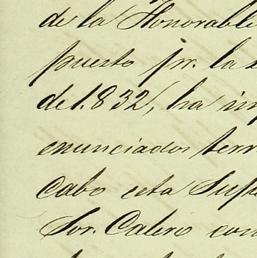 de la Honorable
puesto pr. la
de 1.832, ha
enunciados
cabo esta
Sor. Calero con